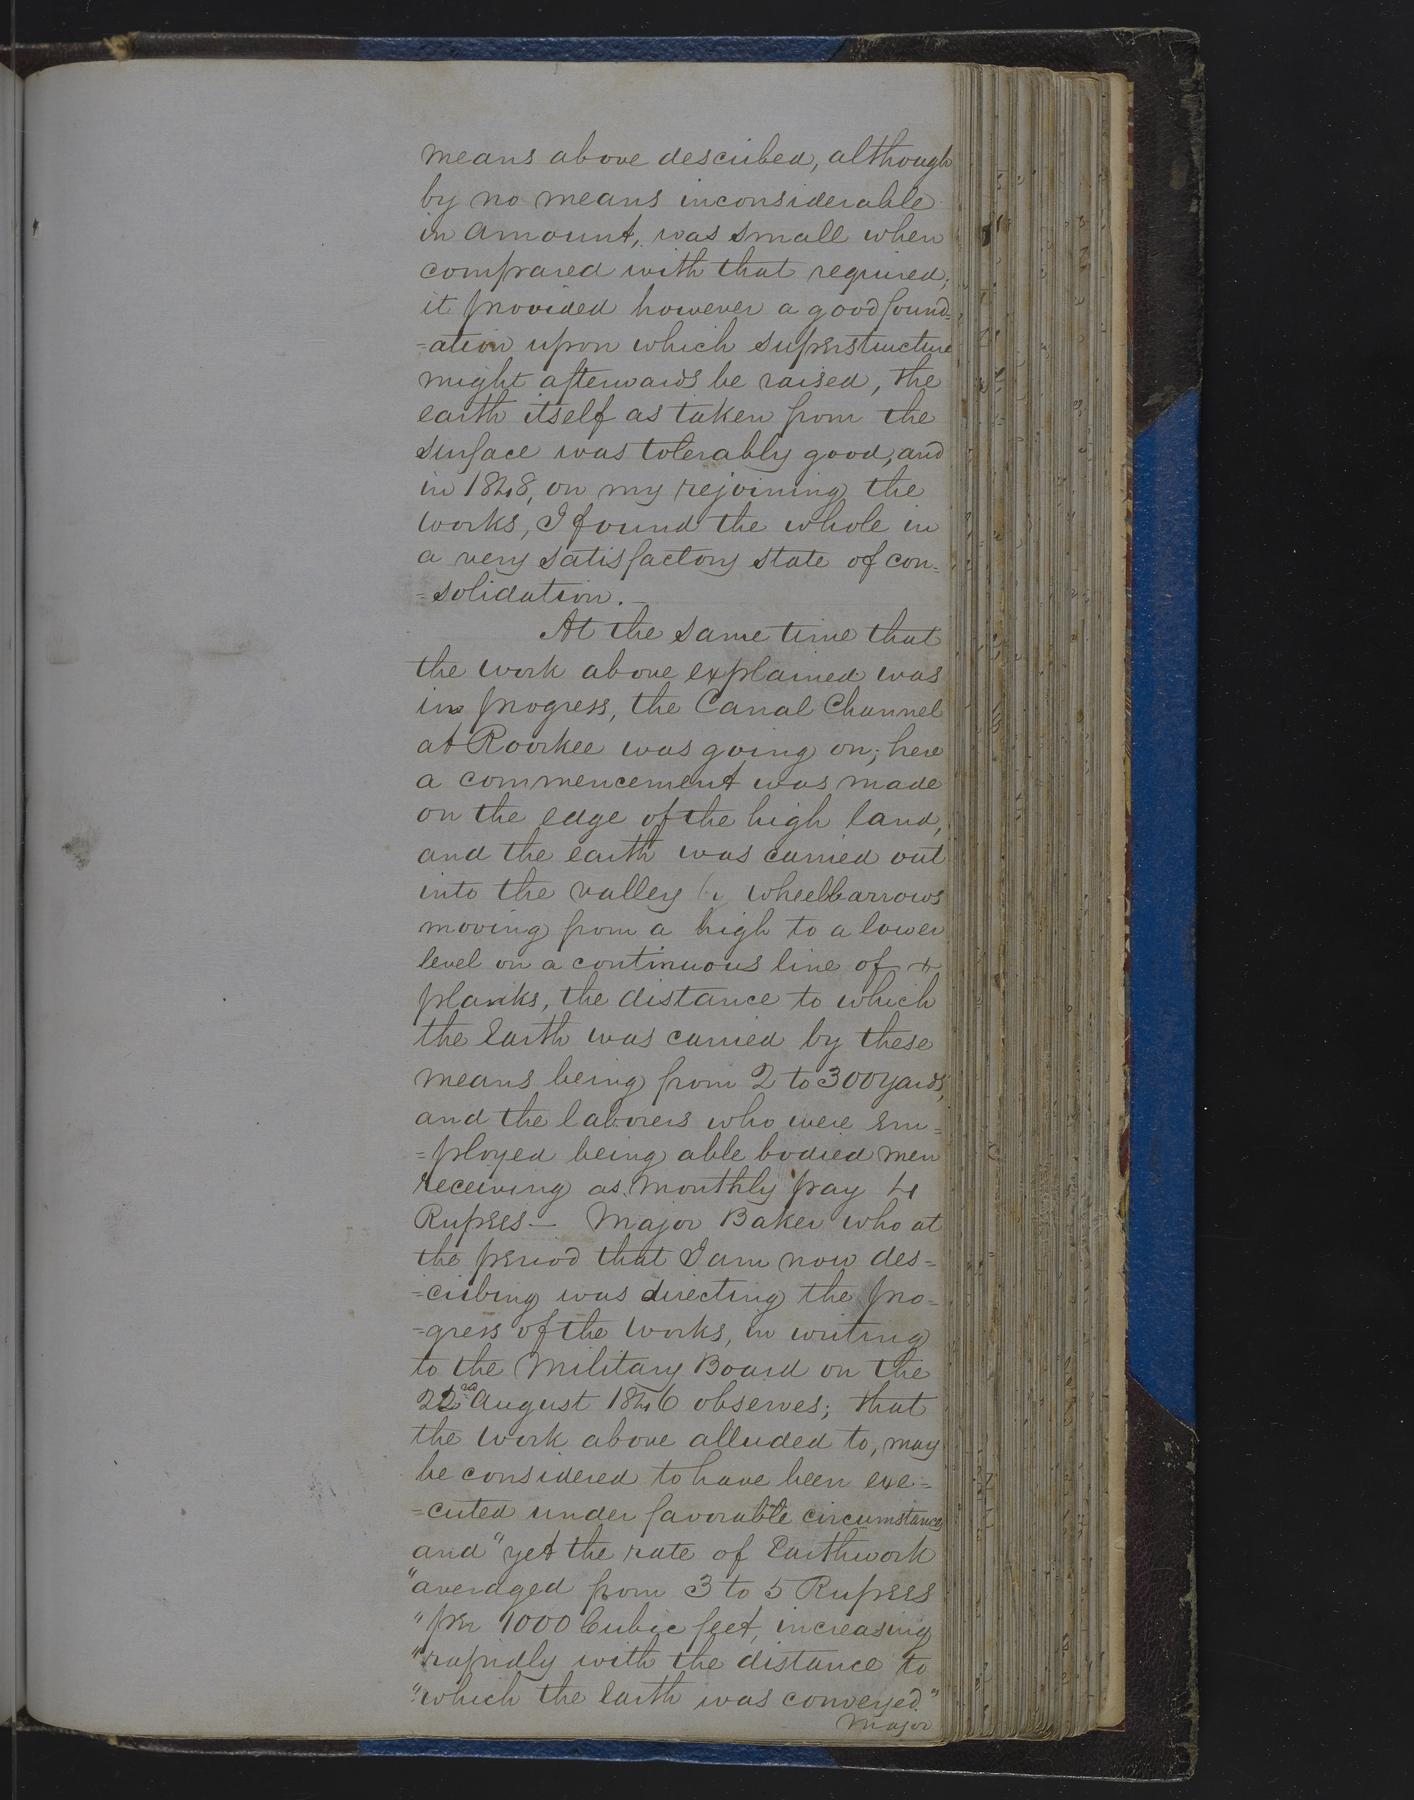 means above described, although
by no means inconsiderable
in amount, was small when
compared with that required;
it provided however a good found-
=ation upon which superstructure
might afterwards be raised, the
earth itself as taken from the
surface was tolerably good, and
in 1848, on my rejoining the
works, I found the whole in
a very satisfactory state of con=
=solidation.—
At the same time that
the work above explained was
in progress, the Canal Channel
at Roorkee was going on; here
a commencement was made
on the edge of the high land,
and the earth was carried out
into the valley by wheelbarrows
moving from a high to a lower
level on a continuous line of
planks, the distance to which
the Earth was carried by these
means being from 2 to 300 yards,
and the laborers who were em=
=ployed being able bodied men
receiving as monthly pay 4
Rupees— Major Baker who at
the period that I am now des=
=cribing was directing the pro=
=gress of the works, in writing
to the Military Board on the
22nd August 1846 observes; that
the work above alluded to, may
be considered to have been exe=
=cuted under favorable circumstances
and "yet the rate of Earthwork
"averaged from 3 to 5 Rupees
"per 1000 Cubic feet, increasing
"rapidly with the distance to
"which the Earth was conveyed."
Major